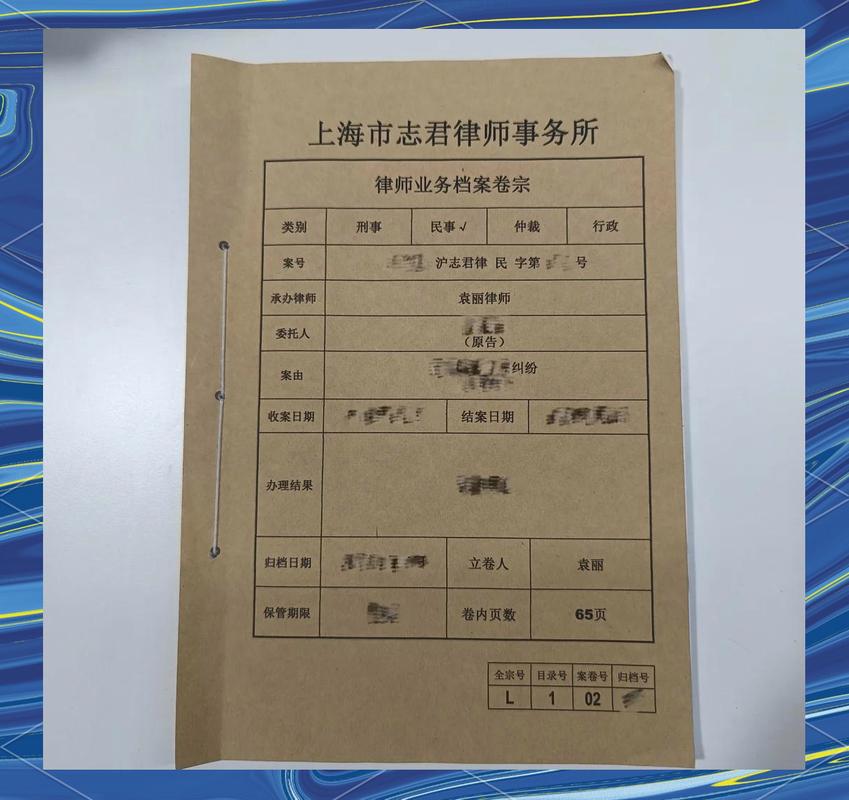 上海市志君律师事务所
律师业务档案卷宗
类别 刑事 民事√ 仲裁 行政
案号 沪志君律 民 字第 号
承办律师 袁丽律师
委托人
（原告）
案由 纠纷
收案日期 结案日期
办理结果
归档日期 立卷人 袁丽
保管期限 卷内页数 65页
全宗号 目录号 案卷号 归档号
L 1 02